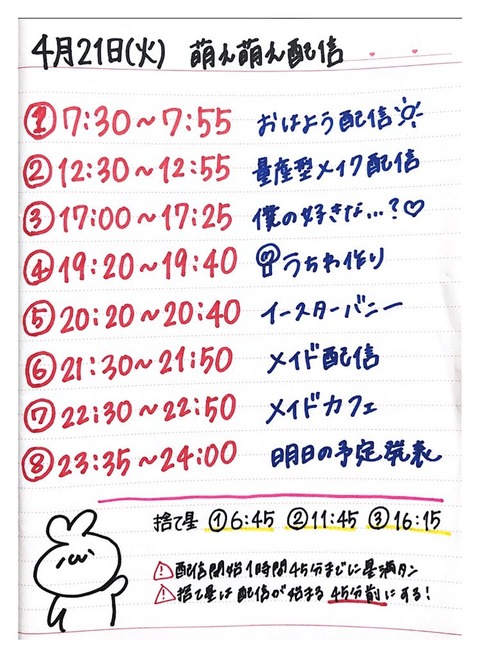 4月21日(火) 萌え萌え配信
①7:30～7:55 おはよう配信
②12:30～12:55 量産型メイク配信
③17:00～17:25 僕の好きな…?♡
④19:20～19:40 うちわ作り
⑤20:20～20:40 イースターバニー
⑥21:30～21:50 メイド配信
⑦22:30～22:50 メイドカフェ
⑧23:35～24:00 明日の予定発表
捨て星 ①6:45 ②11:45 ③16:15
⚠配信開始1時間45分までに星満タン
⚠捨て星は配信が始まる45分前にする!